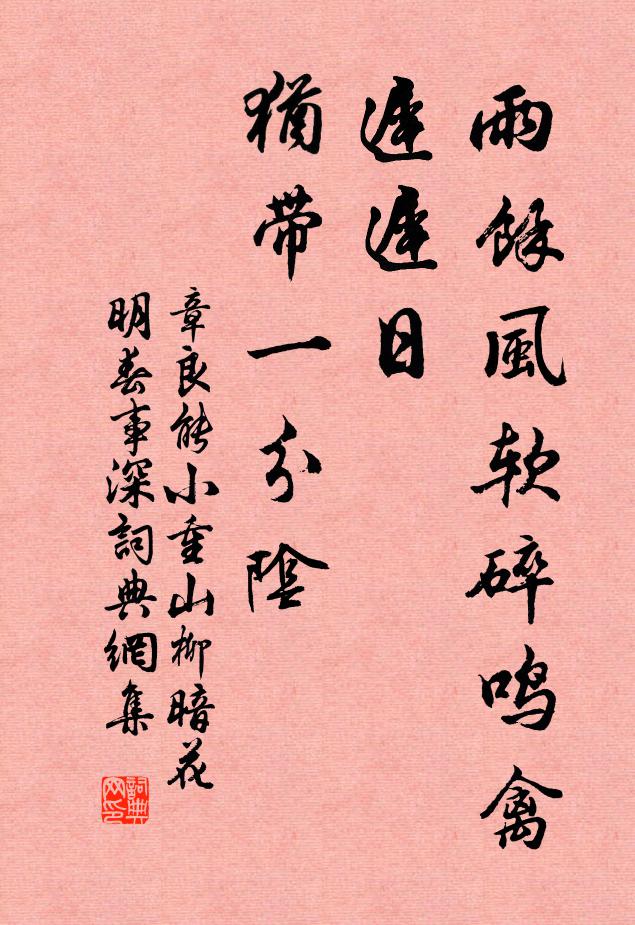 雨餘風软碎鸣禽
遲遲日
猶带一分陰
章良能小重山柳暗花
明春事深詞典網集
詞典
网印